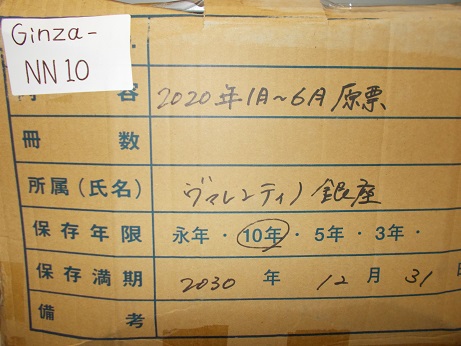 Ginza-
NN 10
容 2020年1月~6月 原票
冊数
所属(氏名) ヴァレンティノ 銀座
保存年限 永年・10年・5年・3年・
保存満期 2030 年 12 月 31
備考